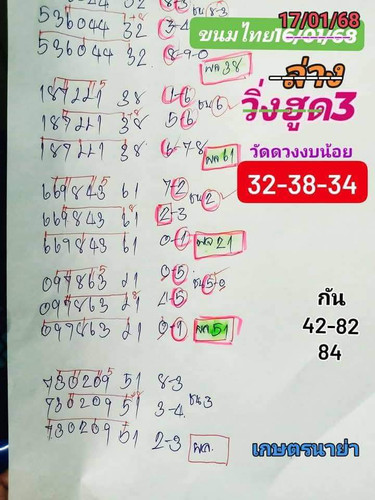 17/01/68
536044 32 3-4
ขนมไทย16/01/68
536044 32 8-9-0 ผล 38
ล่าง
187221 38 1-6
วิ่งฮูด3
187221 38 5-6 ชน 6
187221 38 6-7-8 ผล 61
วัดดวงงบน้อย
669843 61 7-2
32-38-34
669843 61 2-3 ชน 2
669843 61 0-1 ผล 21
097863 21 0-5
097863 21 4-5
กัน
097863 21 0-1 ผล 51
42-82
84
730209 51 8-3
730209 51 3-4 ชน 3
730209 51 2-3 ผล.
เกษตรนาย่า